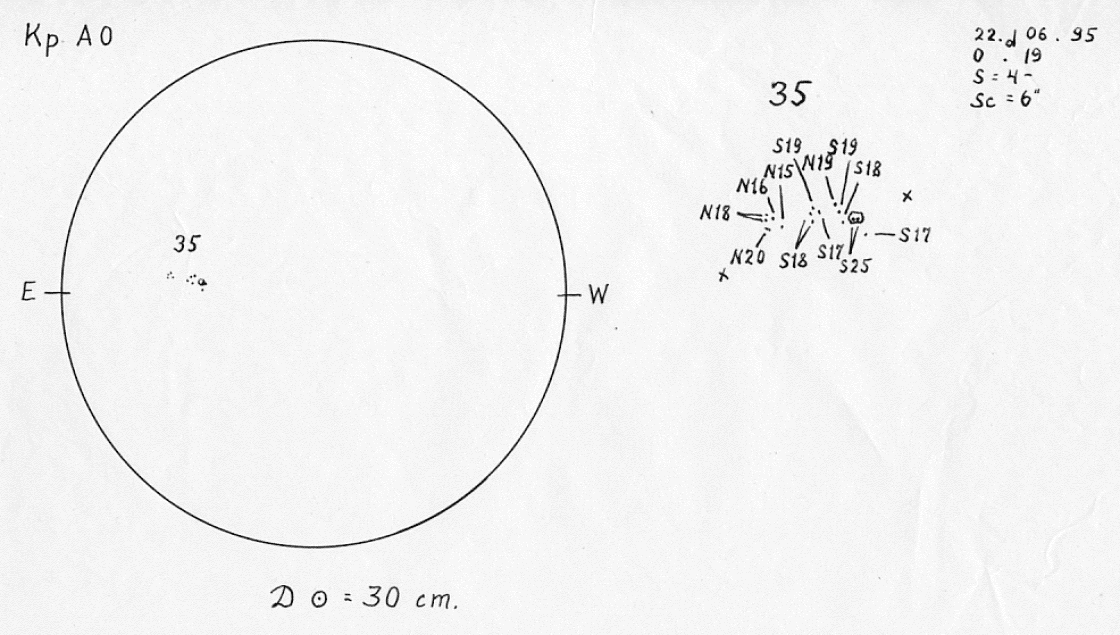 Kp AO
22.d 06 . 95
0 . 19
S = 4 -
Sc = 6"
35
S19 S19
N19
N15 S18
N16
N18
S17
N20 S18 S17 S25
35
E W
D ⊙ = 30 cm.